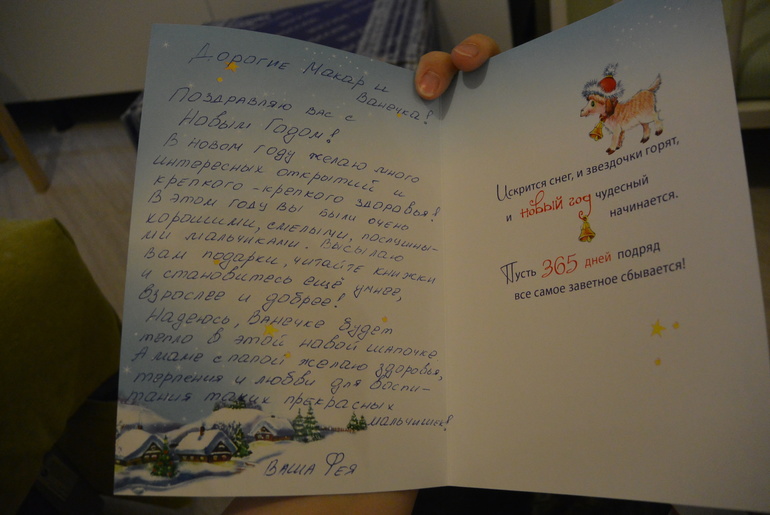 Дорогие Макар и
Ванечка!
Поздравляю вас с
Новым Годом!
В новом году желаю много
интересных открытий и
крепкого-крепкого здоровья!
В этом году вы были очень
хорошими, смелыми, послушны-
ми мальчиками. Высылаю
вам подарки, читайте книжки
и становитесь ещё умнее,
взрослее и добрее!
Надеюсь, Ванечке будет
тепло в этой новой шапочке
А маме с папой желаю здоровья,
терпения и любви для воспи-
тания таких прекрасных
мальчишек!
Ваша Фея
Искрится снег, и звездочки горят,
и новый год чудесный
начинается.
Пусть 365 дней подряд
все самое заветное сбывается!